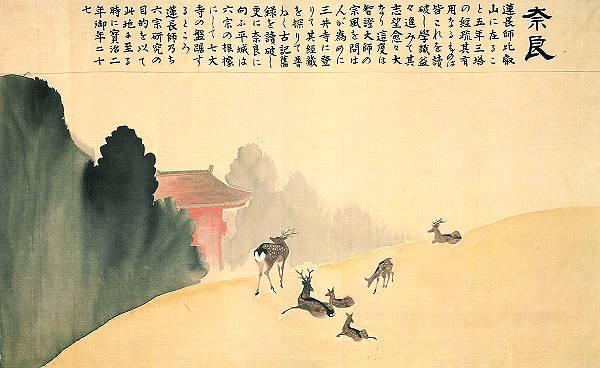 奈良
蓮長師比叡
山に在るこ
と五年三塔
の経疏其有
用なるものは
皆これを讀
破し學識益
々進みて其
志望愈々大
なり這度は
智證大師の
宗風を問は
んが為めに
三井寺に登
りて其経蔵
を探りて普
ねく古記舊
録を讀破し
更に奈良に
向ふ平城は
六宗の根據
にして七大
寺の盤踞す
るところ
蓮長師乃ち
六宗研究の
目的を以て
此地に至る
時に寶治二
年御年二十
七